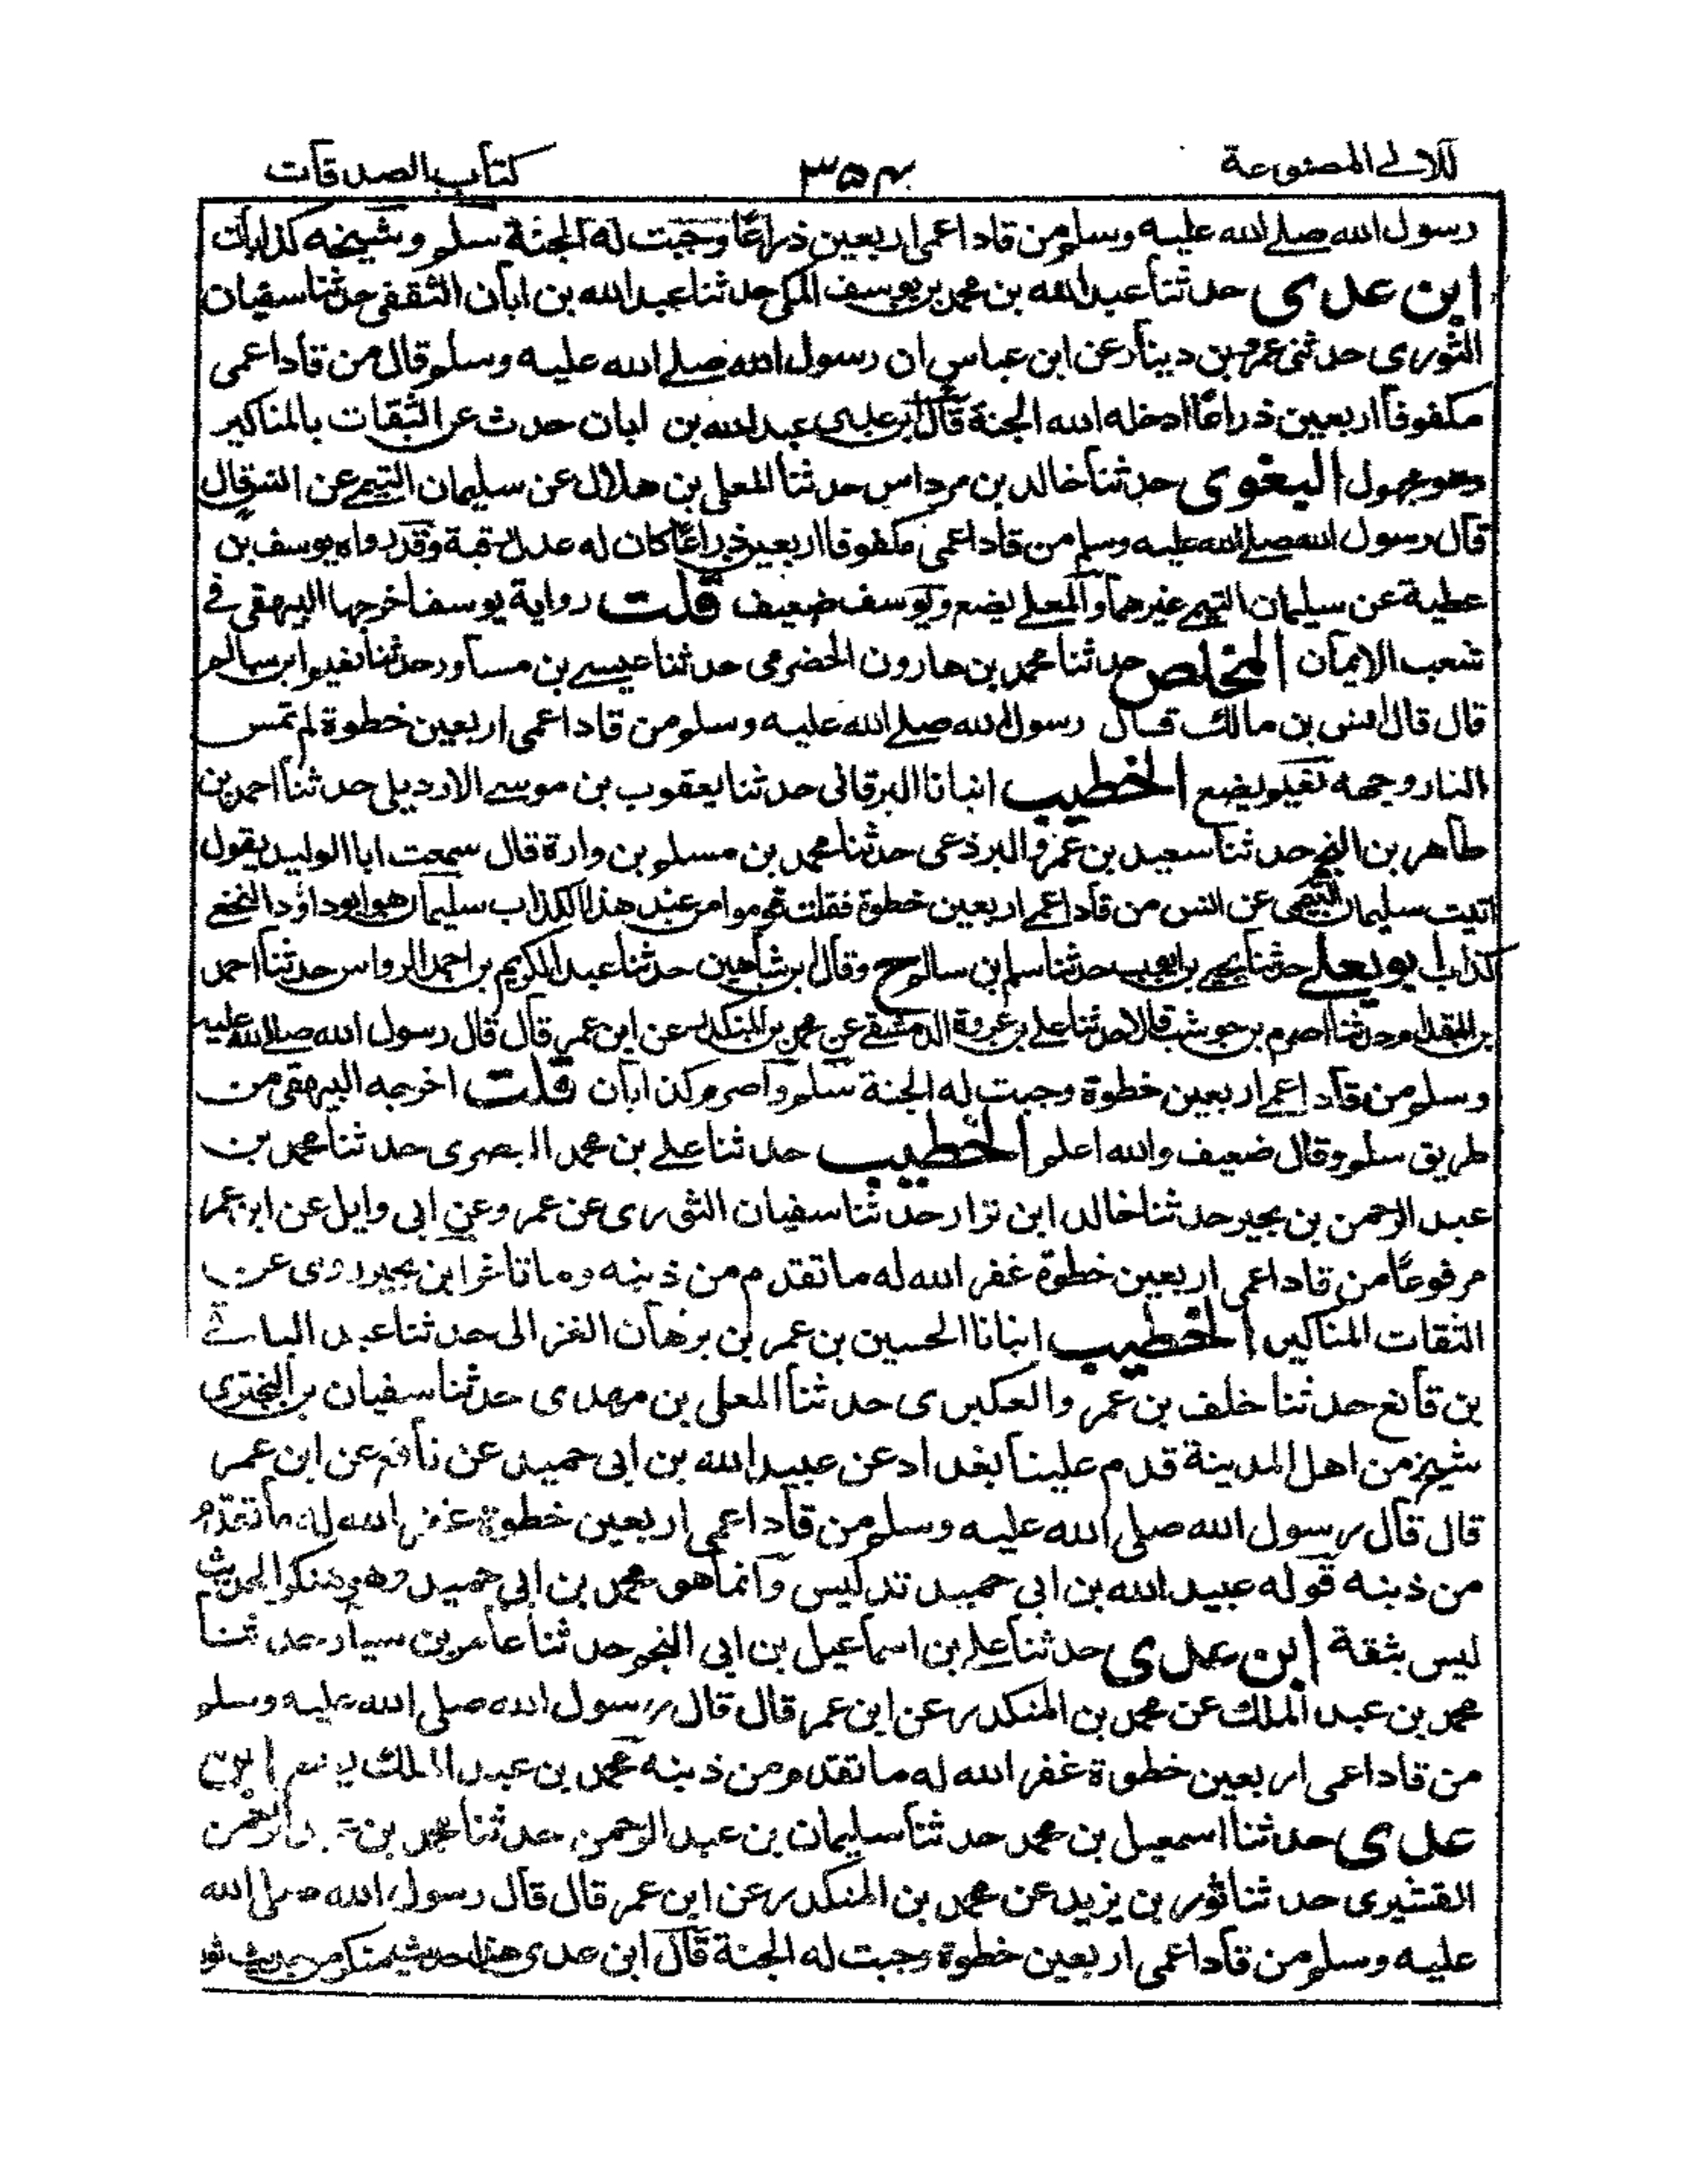 اللآلى المصنوعة
۳۵۴
كتاب الصدقات
رسول الله صلے الله عليه وسلم من قاد اعمى اربعين ذراعًا وجبت له الجنة سلم وشيخه كذابان
ابن عدى حدثنا عبدالله بن محمد بن يوسف المكى حدثنا عبدالله بن ابان الثقفى حدثنا سفيان
الثورى حدثنى عمرو بن دينار عن ابن عباس ان رسول الله صلے الله عليه وسلم قال من قاد اعمى
مكفوفا اربعين ذراعًا ادخله الله الجنة قال ابن عدى عبدالله بن ابان حدث عن الثقات بالمناكير
وهو مجهول البغوى حدثنا خالد بن مرداس حدثنا المعلى بن هلال عن سليمان التيمى عن انس قال
قال رسول الله صلے الله عليه وسلم من قاد اعمى مكفوفا اربعين ذراعًا كان له عدل رقبة وقد رواه يوسف بن
عطية عن سليمان التيمى غيرهما والمعلے يضع ويوسف ضعيف قلت رواية يوسف اخرجها البيهقى فے
شعب الايمان المخلص حدثنا محمد بن هارون الحضرمى حدثنا عيسے بن مساور حدثنا يغنم ابن سالم
قال قال انس بن مالك قال رسول الله صلے الله عليه وسلم من قاد اعمى اربعين خطوة لم تمس
النار وجهه يغنم يضع الخطيب انبانا البرقانى حدثنا يعقوب بن موسے الاردبيلى حدثنا احمد بن
طاهر بن النجم حدثنا سعيد بن عمرو البرذعى حدثنا محمد بن مسلم بن وارة قال سمعت ابا الوليد يقول
اتيت سليمان التيمى عن انس من قاد اعمے اربعين خطوة فقلت قوموا من عند هذا الكذاب سليمان هو ابو داؤد النخعى
كذاب ابو يعلے حدثنا يحيے بن ايوب حدثنا سلم بن سالم ح وقال ابن شاهين حدثنا عبد الكريم بن احمد الرواس حدثنا احمد
بن المقدام حدثنا اصرم بن حوشب قالا حدثنا على بن عروة الدمشقے عن محمد بن المنكدر عن ابن عمر قال قال رسول الله صلے الله عليه
وسلم من قاد اعمے اربعين خطوة وجبت له الجنة سلم واصرم كذابان قلت اخرجه البيهقى من
طريق سلم وقال ضعيف والله اعلم الخطيب حدثنا علے بن محمد البصرى حدثنا محمد بن
عبد الرحمن بن بجير حدثنا خالد ابن نزار حدثنا سفيان الثورى عن عمرو عن ابى وايل عن ابن عمر
مرفوعًا من قاد اعمى اربعين خطوة غفر الله له ما تقدم من ذنبه وما تاخر ابن بجير روى عن
الثقات المناكير الخطيب انبانا الحسين بن عمر بن برهان الغزالى حدثنا عبد الباقے
بن قانع حدثنا خلف بن عمرو العكبرى حدثنا المعلى بن مهدى حدثنا سفيان بن البخترى
شيخ من اهل المدينة قدم علينا بغداد عن عبيد الله بن ابى حميد عن نافع عن ابن عمر
قال قال رسول الله صلى الله عليه وسلم من قاد اعمى اربعين خطوة غفر الله له ما تقدم
من ذنبه قوله عبيد الله بن ابى حميد تدليس وانما هو محمد بن ابى حميد وهو منكر الحديث
ليس بثقة ابن عدى حدثنا علے بن اسماعيل بن ابى النجم حدثنا عامر بن سيار حدثنا
محمد بن عبد الملك عن محمد بن المنكدر عن ابن عمر قال قال رسول الله صلى الله عليه وسلم
من قاد اعمى اربعين خطوة غفر الله له ما تقدم من ذنبه محمد بن عبد الملك يضع ابن
عدى حدثنا اسمعيل بن محمد حدثنا سليمان بن عبد الرحمن حدثنا محمد بن عبد الرحمن
القشيرى حدثنا ثور بن يزيد عن محمد بن المنكدر عن ابن عمر قال قال رسول الله صلى الله
عليه وسلم من قاد اعمى اربعين خطوة وجبت له الجنة قال ابن عدى هذا حديث منكر من حديث ثور